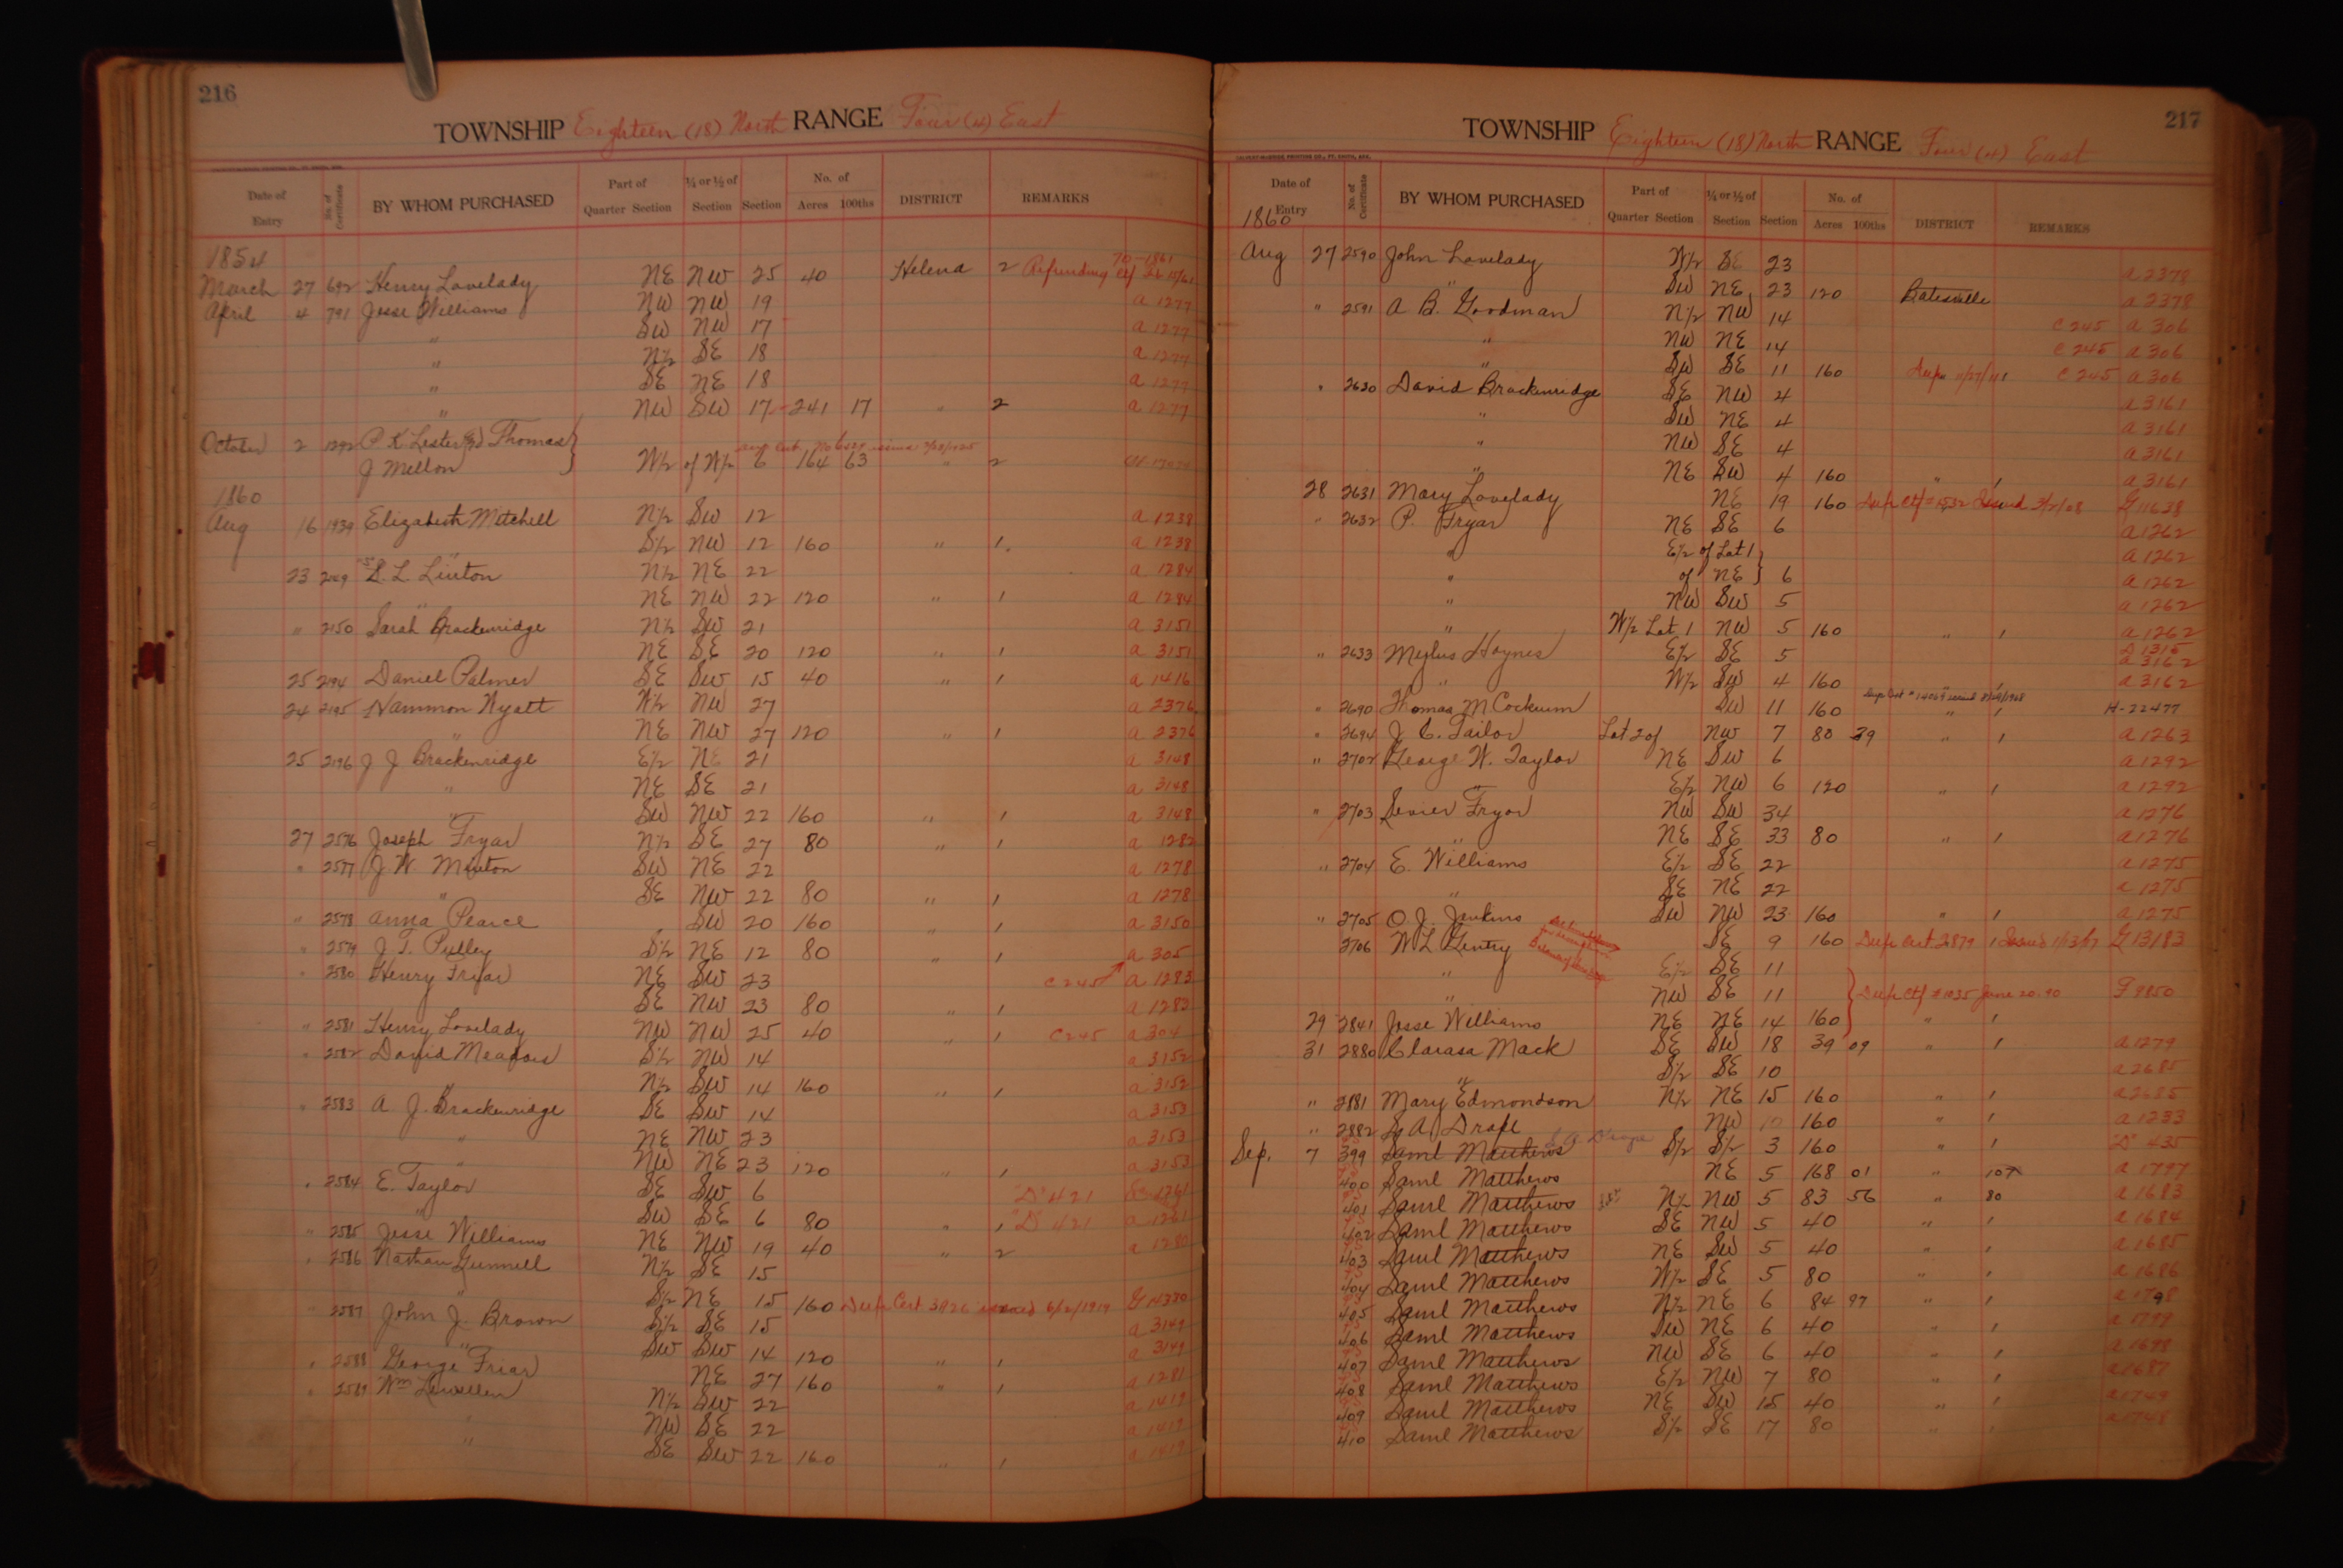 216
TOWNSHIP Eighteen (18) North RANGE Four (4) East
Date of Entry No. of Certificate BY WHOM PURCHASED Part of Quarter Section ¼ or ½ of Section Section No. of Acres 100ths DISTRICT REMARKS
1854
March 27 692 Henry Lovelady NE NW 25 40 Helena 2 Refunding
April 4 791 Jesse Williams NW NW 19 a 1277
" SW NW 17 a 1277
" N½ SE 18 a 1277
" SE NE 18 a 1277
" NW SW 17 241 17 " 2 a 1277
October 2 1292 P K Lester and Thomas }
J Mellon W½ of W½ 6 164 63 " 2
1860
Aug 16 1939 Elizabeth Mitchell N½ SW 12 a 1238
" S½ NW 12 160 " 1. a 1238
23 S. L. Linton N½ NE 22 a 1284
" NE NW 22 120 " 1 a 1284
" 2150 Sarah Brackenridge N½ SW 21 a 3151
NE SE 20 120 " 1 a 3151
25 2194 Daniel Palmer SE SW 15 40 " 1 a 1416
24 2195 Hammon Wyatt W½ NW 27 a 2376
" NE NW 27 120 " 1 a 2376
25 2196 J J Brackenridge E½ NE 21 a 3148
" NE SE 21 a 3148
" SW NW 22 160 " 1 a 3148
27 2576 Joseph Fryar N½ SE 27 80 " 1 a 1282
" 2577 J W Minton SW NE 22 a 1278
" SE NW 22 80 " 1 a 1278
" 2578 Anna Pearce SW 20 160 " 1 a 3150
" 2579 J. T. Pulley S½ NE 12 80 " 1 a 305
" 2580 Henry Fryar NE SW 23 C 245 a 1283
SE NW 23 80 " 1 a 1283
" 2581 Henry Lovelady NW NW 25 40 " 1 C 245 a 304
" 2582 David Meadows S½ NW 14 a 3152
" N½ SW 14 160 " 1 a 3152
" 2583 A. J. Brackenridge SE SW 14 a 3153
" NE NW 23 a 3153
" NW NE 23 120 " 1 a 3153
" 2584 E. Taylor SE SW 6 "D" 421 a 1261
" SW SE 6 80 " 1 "D" 421 a 1261
" 2585 Jesse Williams NE NW 19 40 " 2 a 1280
" 2586 Nathan Gunnell N½ SE 15
" S½ NE 15 160 Dup Cert 3826 issued 6/2/1919 G 14380
" 2587 John J. Brown S½ SE 15 a 3149
" SW SW 14 120 " 1 a 3149
" 2588 George Friar NE 27 160 " 1 a 1281
" 2589 Wm Lewellen N½ SW 22 a 1419
" NW SE 22 a 1419
" SE SW 22 160 " 1 a 1419
217
TOWNSHIP Eighteen (18) North RANGE Four (4) East
Date of Entry No. of Certificate BY WHOM PURCHASED Part of Quarter Section ¼ or ½ of Section Section No. of Acres 100ths DISTRICT REMARKS
1860
Aug 27 2590 John Lovelady W½ SE 23 a 2378
" SW NE 23 120 Batesville a 2378
" 2591 A B. Goodman N½ NW 14 C 245 a 306
" NW NE 14 C 245 a 306
" SW SE 11 160 C 245 a 306
" 2630 David Brackenridge SE NW 4 a 3161
" SW NE 4 a 3161
" NW SE 4 a 3161
" NE SW 4 160 " 1 a 3161
28 2631 Mary Lovelady NE 19 160 Dup Ctf #1532 Issued 3/2/08 G 11638
" 2632 P. Fryar NE SE 6 a 1262
" E½ of Lot 1 } a 1262
" of NE } 6 a 1262
" NW SW 5 a 1262
" W½ Lot 1 NW 5 160 " 1 a 1262
" 2633 Haynes E½ SE 5 D 1315 a 3162
" W½ SW 4 160 " 1 a 3162
" 2690 Thomas M Cockrum SW 11 160 " 1 H-22477
" 2694 J. C. Tailor Lot 2 of NW 7 80 39 " 1 a 1263
" 2702 George W. Taylor NE SW 6 a 1292
" E½ NW 6 120 " 1 a 1292
" 2703 Sevier Fryor NW SW 34 a 1276
" NE SE 33 80 " 1 a 1276
" 2704 E. Williams E½ SE 22 a 1275
" SE NE 22 a 1275
" 2705 O. J. Jenkins SW NW 23 160 " 1 a 1275
2706 W L Gentry SE 9 160 Dup Cert 2879 Issued 1/13/17 G 13183
" E½ SE 11
" NW SE 11 Dup Ctf #1035 June 20.90 F 8850
29 2841 Jesse Williams NE NE 14 160 " 1
31 2880 Clarasa Mack SE SW 18 39 09 " 1 a 1279
" S½ SE 10 a 2685
" 2881 Mary Edmondson N½ NE 15 160 " 1 a 2685
" 2882 S. A. Drape S. A. Drape NW 10 160 " 1 a 1233
Sep. 7 399 Saml Matthews S½ S½ 3 160 " 1 "D" 435
400 Saml Matthews NE 5 168 01 " 107 a 1797
401 Saml Matthews N½ NW 5 83 56 " 80 a 1683
402 Saml Matthews SE NW 5 40 " 1 a 1684
403 Saml Matthews NE SW 5 40 " 1 a 1685
404 Saml Matthews W½ SE 5 80 " 1 a 1686
405 Saml Matthews N½ NE 6 84 97 " 1 a 1798
406 Saml Matthews SW NE 6 40 " 1 a 1799
407 Saml Matthews NW SE 6 40 " 1 a 1698
408 Saml Matthews E½ NW 7 80 " 1 a 1687
409 Saml Matthews NE SW 15 40 " 1 a 1749
410 Saml Matthews S½ SE 17 80 " 1 a 1748